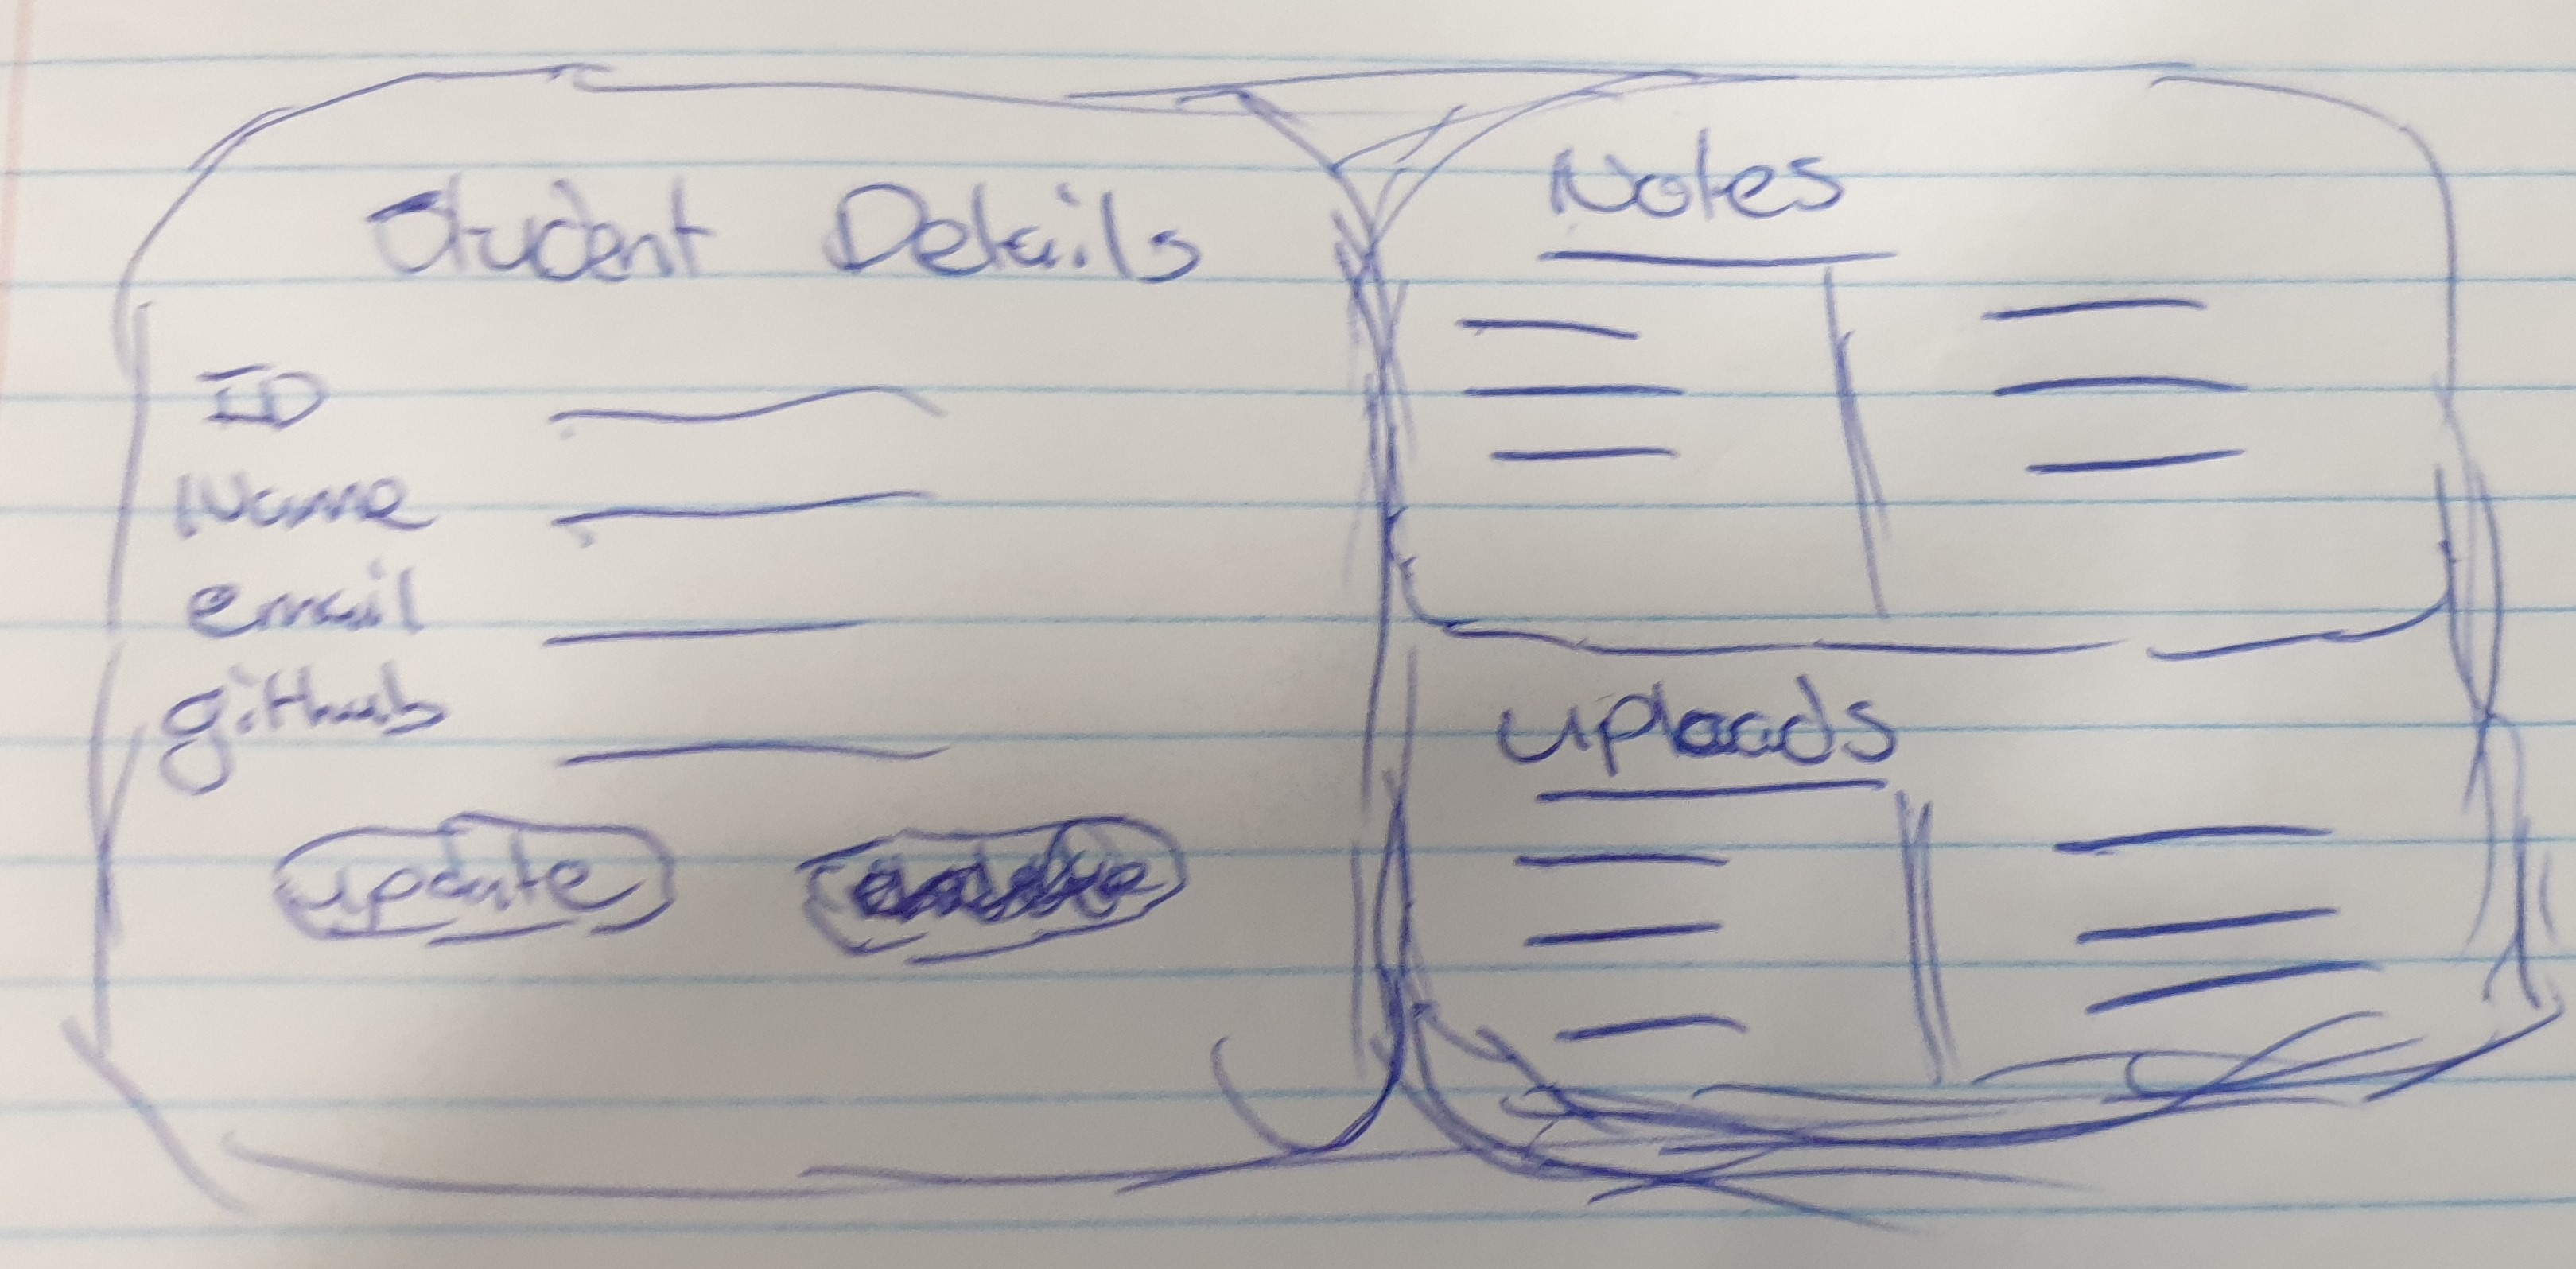 Student Details
ID
Name
email
github
update
Notes
uploads